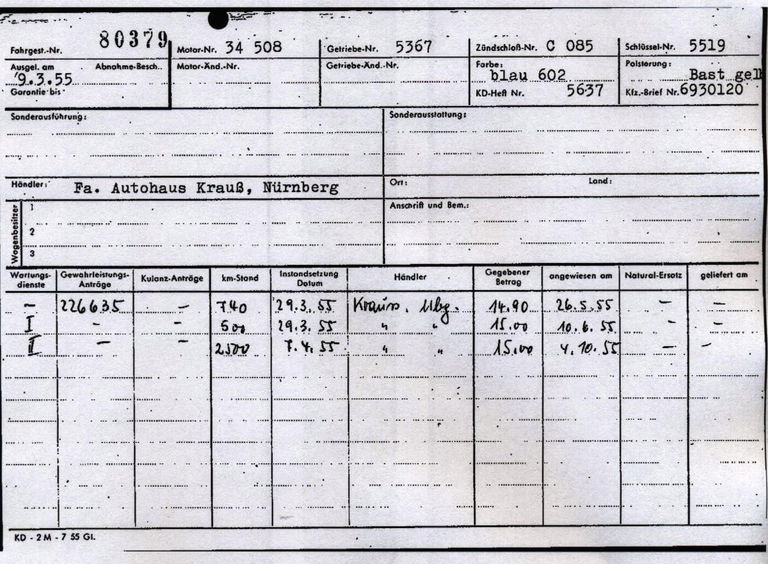 Fahrgest.-Nr. 80379 Motor-Nr. 34 508 Getriebe-Nr. 5367 Zündschloß-Nr. C 085 Schlüssel-Nr. 5519
Ausgel. am Abnahme-Besch. Motor-Änd.-Nr. Getriebe-Änd.-Nr. Farbe: Polsterung:
9.3.55 blau 602 Bast gelb
Garantie bis KD-Heft Nr. 5637 Kfz.-Brief Nr. 6930120
Sonderausführung: Sonderausstattung:
Händler: Fa. Autohaus Krauß, Nürnberg Ort: Land:
Wagenbesitzer 1 Anschrift und Bem.:
2
3
Wartungs- Gewährleistungs- Kulanz-Anträge km-Stand Instandsetzung Händler Gegebener angewiesen am Natural-Ersatz geliefert am
dienste Anträge Datum Betrag
– 226635 – 740 29.3.55 Krauss, Nbg. 14.90 26.5.55 – –
I – – 600 29.3.55 " " 15.00 10.6.55 – –
II – – 2500 7.4.55 " " 15.00 4.10.55 – –
KD - 2 M - 7 55 Gl.